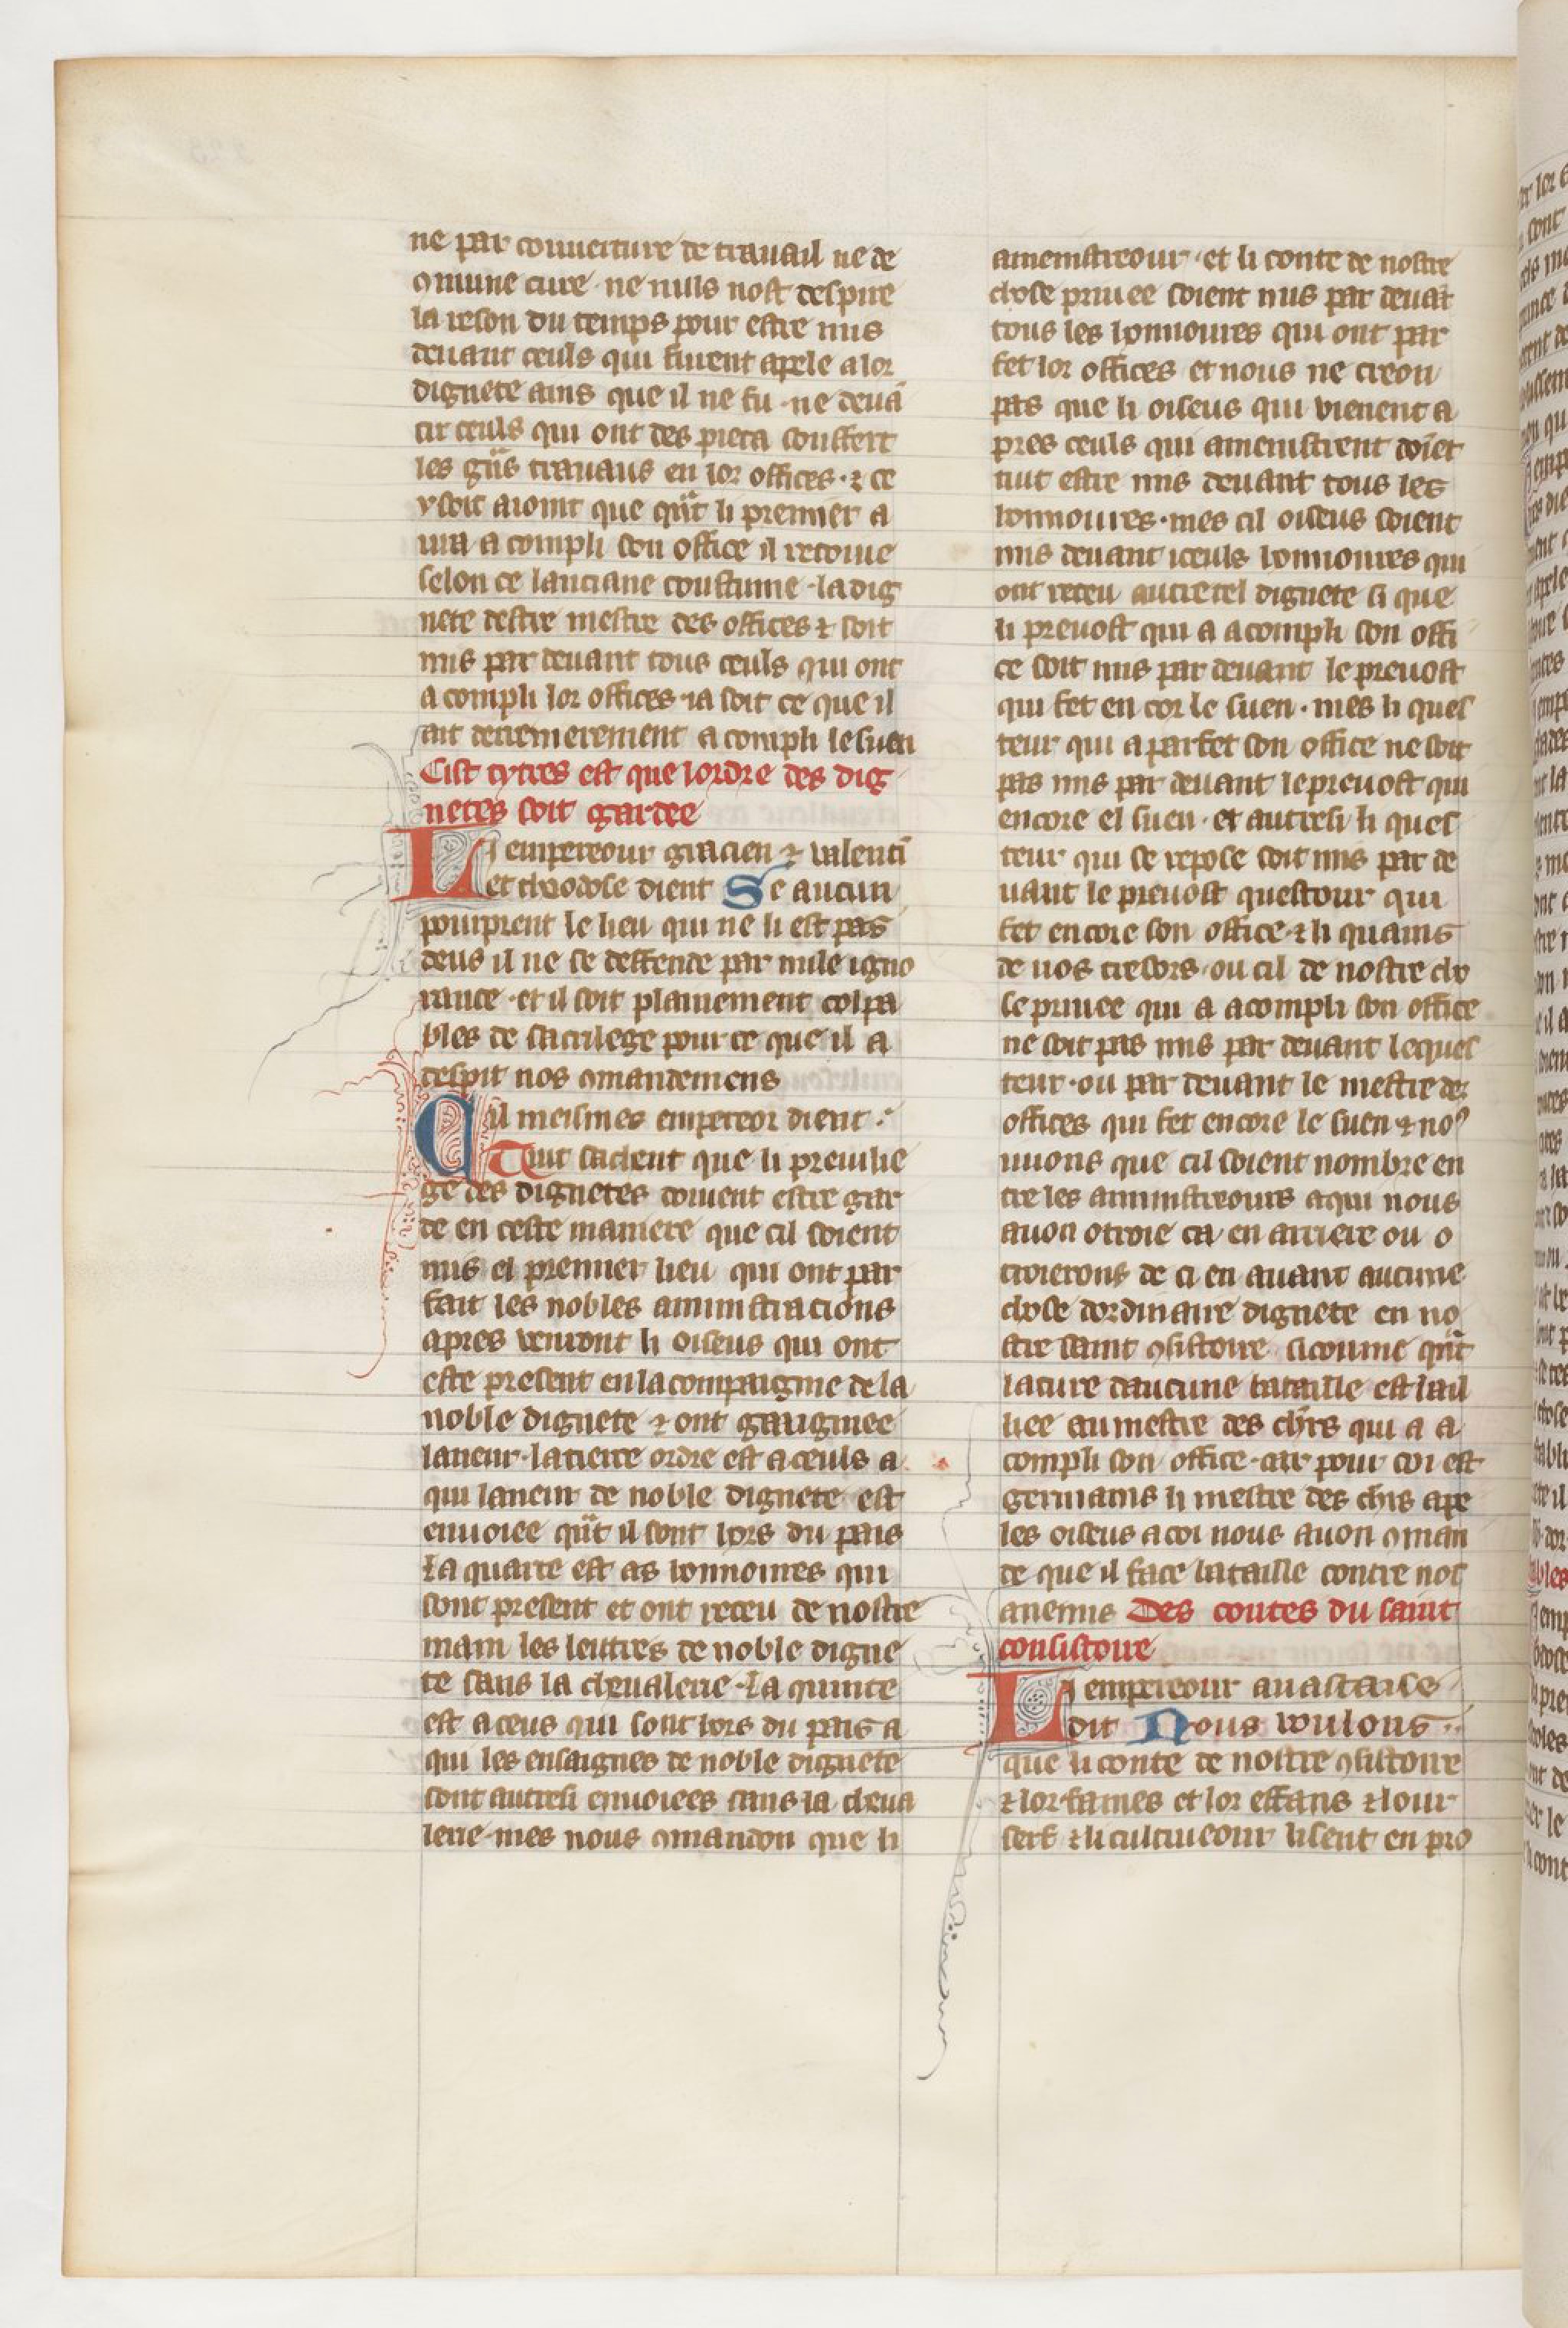 ne par couuerture de trauail ne de
ꝯmune cure · ne nuls nost despire
la reson du temps pour estre mis
deuant ceuls qui furent apele a lor
dignete ains que il ne fu · ne deuā
cir ceuls qui ont des pieca souffert
les gñs trauaus en lor offices · ⁊ ce
y soit aiomt que qñt li premier a
ura a compli son office il retoine
selon ce lanciane coustume · la dig
nete destre mestre des offices ⁊ soit
mis par deuant tous ceuls qui ont
a compli lor offices · ia soit ce que il
ait derriemerement a compli le suen
Cist tytres est que lordre des dig
netes soit gardee
Li empereour gracien ⁊ valenti
et theodose dient Se aucun
pourprent le lieu qui ne li est pas
deus il ne se deffende par nule igno
rance · et il soit plainement colpa
bles de sacrilege pour ce que il a
despit nos ꝯmandemens
Cil meismes empereor dient ·
Tuit sachent que li preuilie
ge des dignetes doiuent estre gar
de en ceste maniere que cil soient
mis el premier lieu qui ont par
fait les nobles aministracions
apres venront li oiseus qui ont
este present en la compaignie de la
noble dignete ⁊ ont gaaigniee
laneur · la tierce ordre est a ceuls a
qui laneur de noble dignete est
enuoiee qñt il sont hors du pais
La quarte est as honnoures qui
sont present et ont receu de nostre
main les lettres de noble digne
te sans la cheualerie · La quinte
est a ceus qui sont hors du pais a
qui les ensaignes de noble dignete
sont autresi enuoiees sans la cheua
lerie · mes nous ꝯmandon que li
amenistreour · et li conte de nostre
chose priuee soient mis par deuāt
tous les honnoures qui ont par
fet lor offices et nous ne creon
pas que li oiseus qui vienent a
pres ceuls qui amenistrent doiēt
tuit estre mis deuant tous les
honnoures · mes cil oiseus soient
mis deuant iceuls honnoures qui
ont receu autretel dignete si que
li preuost qui a acompli son offi
ce soit mis par deuant le preuost
qui fet en cor le suen · mes li ques
teur qui a parfet son office ne soit
pas mis par deuant le preuost qui
encore el suen · et autresi li ques
teur qui se repose soit mis par de
uant le preuost questour qui
fet encore son office · ⁊ li quains
de nos tresors · ou cil de nostre cho
se priuee qui a acompli son office
ne soit pas mis par deuant leques
teur · ou par deuant le mestre des
offices qui fet encore le suen ⁊ noꝰ
uuons que cil soient nombre en
tre les aministreours a qui nous
auon otroie ca en arriere ou o
troierons de ci en auant aucune
chose dordinaire dignete en no
stre saint ꝯsistoire · si comme qñt
la cure daucune bataille est bail
liee au mestre des chl̃rs qui a a
compli son office · car pour coi est
germains li mestre des chl̃rs ape
les oiseus a coi nous auon ꝯman
de que il face bataille contre nos
anemis Des contes du saint
consistoire
Li empereour anastaise
dit Nous voulons
que li conte de nostre ꝯsistoire
⁊ lor fames et lor effans ⁊ lour
serf ⁊ li cultiueour lisent en pro